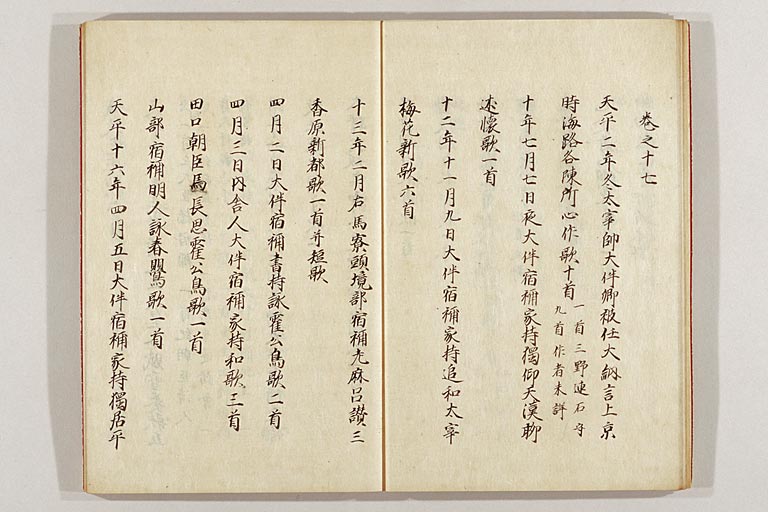 巻之十七
天平二年冬太宰帥大伴卿被任大納言上京
時海路各陳所心作歌十首
一首三野連石守
九首作者未詳
十年七月七日夜大伴宿祢家持獨仰天漢聊
述懐歌一首
十二年十一月九日大伴宿祢家持追和太宰
梅花新歌六首
十三年二月右馬寮頭境部宿祢老麻呂讃三
香原新都歌一首并短歌
四月二日大伴宿祢書持詠霍公鳥歌二首
四月三日内舎人大伴宿祢家持和歌三首
田口朝臣馬長思霍公鳥歌一首
山部宿祢明人詠春鸎歌一首
天平十六年四月五日大伴宿祢家持獨居平